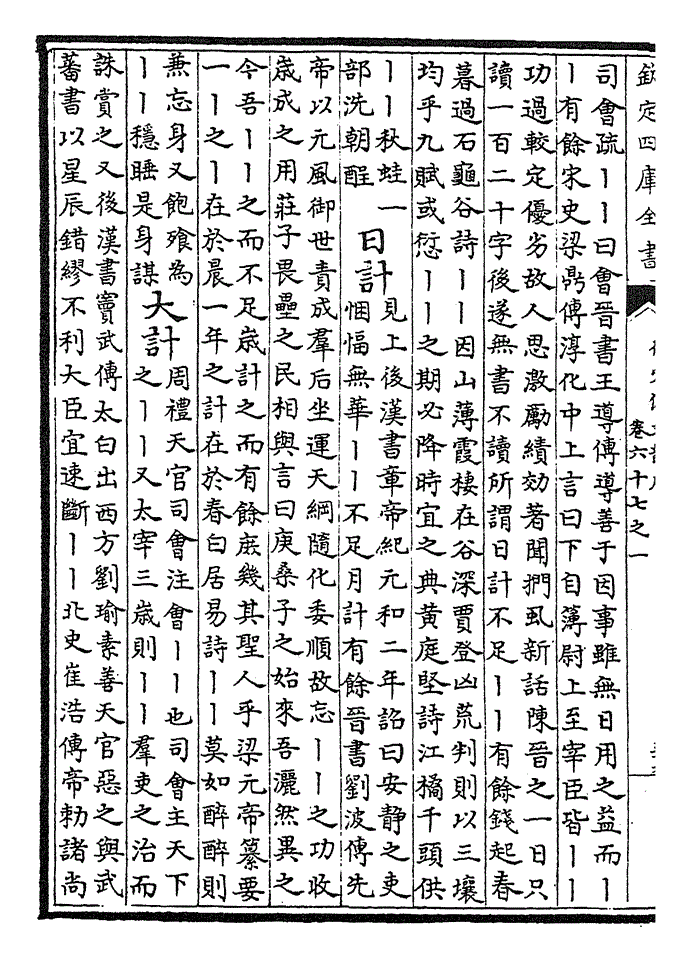 欽定四庫全書
卷六十七之一
司會疏丨丨曰會晉書王導傳導善于因事雖無日用之益而丨
丨有餘宋史梁鼎傳淳化中上言曰下自簿尉上至宰臣皆丨丨
功過較定優劣故人思激勵績効著聞捫虱新話陳晉之一日只
讀一百二十字後遂無書不讀所謂日計不足丨丨有餘錢起春
暮過石龜谷詩丨丨因山薄霞棲在谷深賈登凶荒判則以三壤
均乎九賦或愆丨丨之期必降時宜之典黄庭堅詩江橘千頭供
丨丨秋蛙一
部洗朝酲
日計
見上後漢書章帝紀元和二年詔曰安静之吏
悃愊無華丨丨不足月計有餘晉書劉波傳先
帝以元風御世責成羣后坐運天綱隨化委順故忘丨丨之功收
歳成之用莊子畏壘之民相與言曰庚桑子之始來吾灑然異之
今吾丨丨之而不足歳計之而有餘庶幾其聖人乎梁元帝纂要
一丨之丨在於晨一年之計在於春白居易詩丨丨莫如醉醉則
兼忘身又飽飱為
丨丨穩睡是身謀
大計
周禮天官司會注會丨丨也司會主天下
之丨丨又太宰三歳則丨丨羣吏之治而
誅賞之又後漢書竇武傳太白出西方劉瑜素善天官惡之與武
蕃書以星辰錯繆不利大臣宜速斷丨丨北史崔浩傳帝勅諸尚